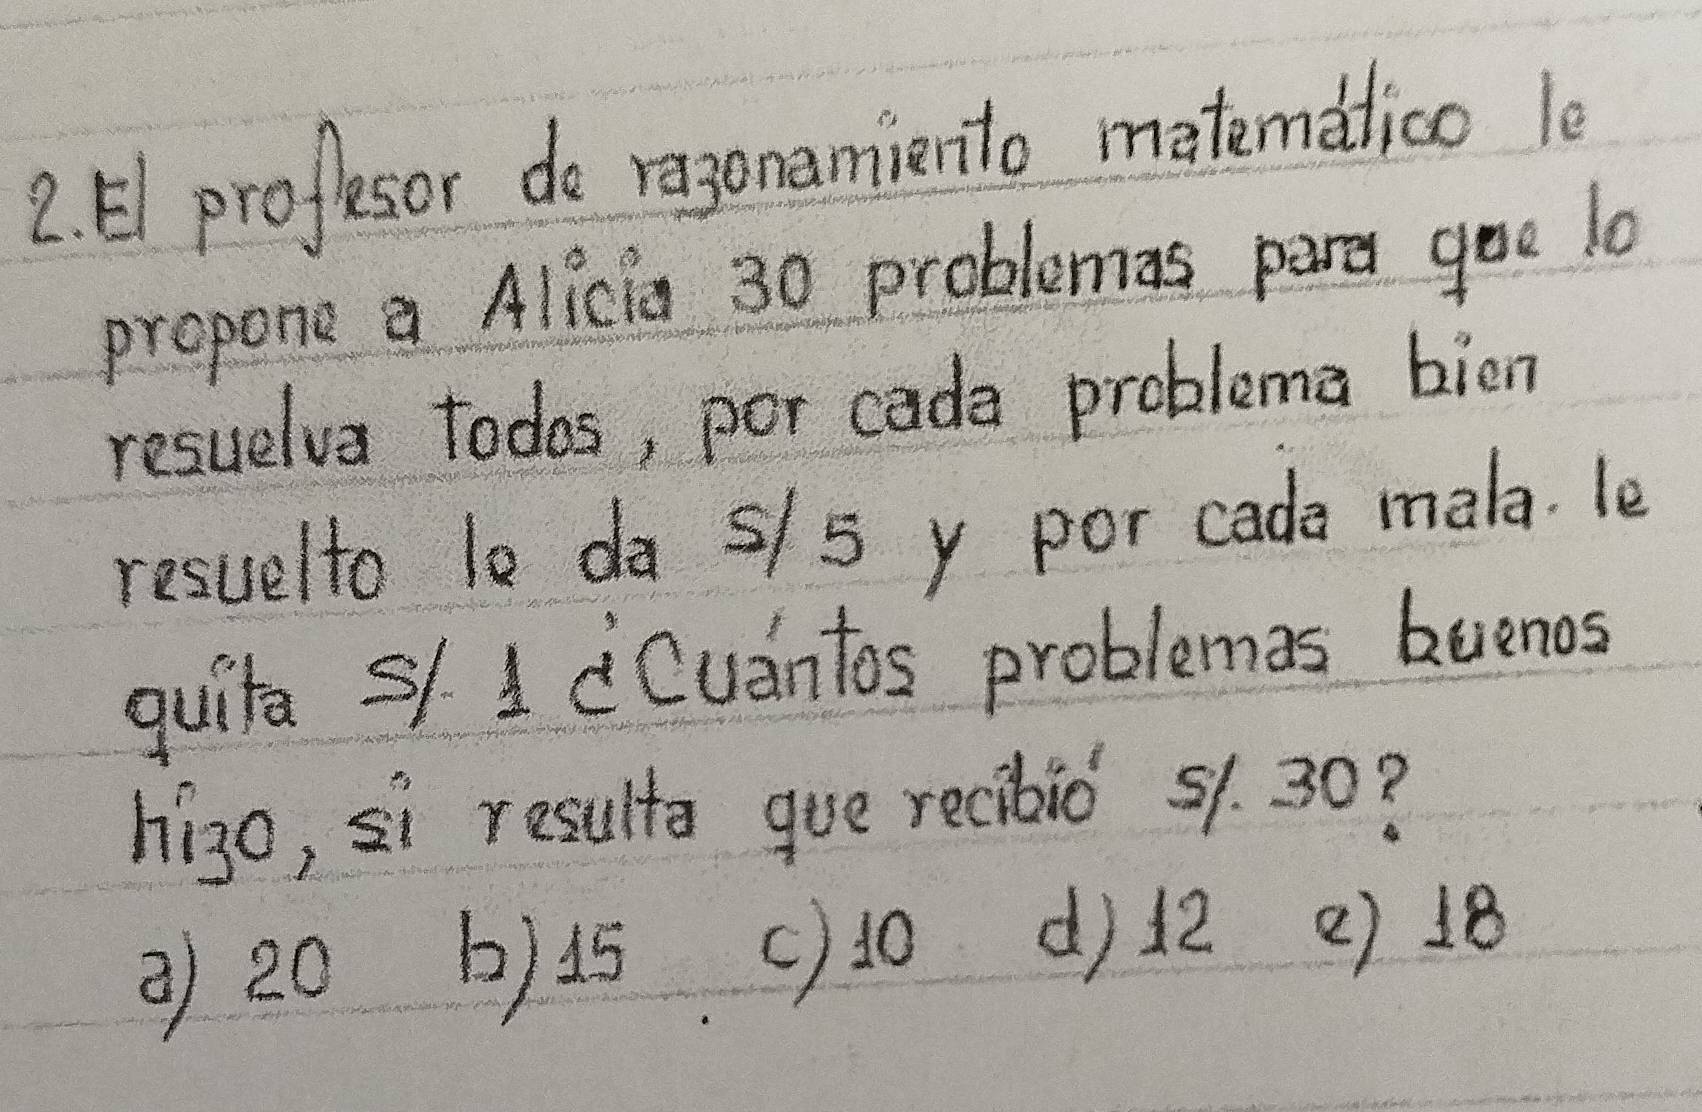 2. El profesor de razonamiento matemático le
propone a Alicia 30 problemas para que lo
resuelva todos, por cada problema bien
resuelto le da s/ 5 y por cada mala. le
quita s/. 1 ¿Cuántos problemas buenos
hizo, si resulta que recibió s/. 30?
a) 20 b) 15 c) 10 d) 12 e) 18